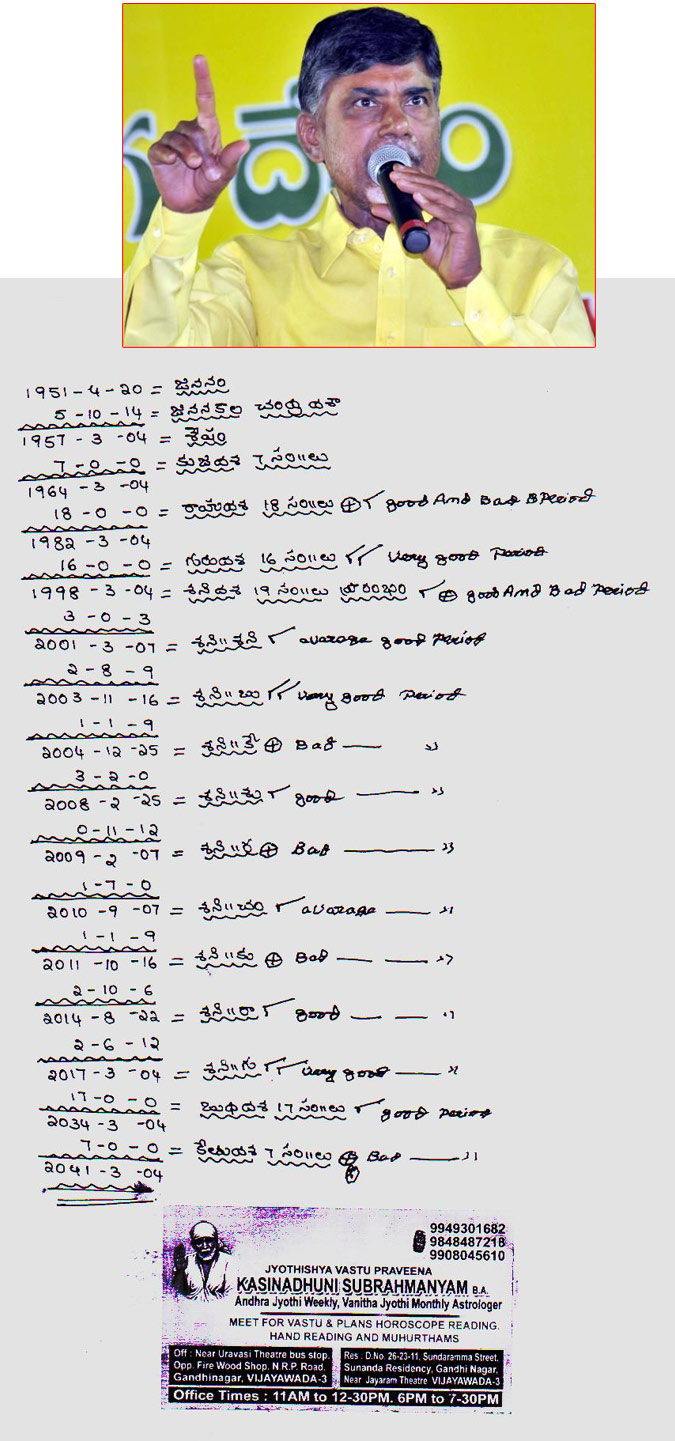 గు దేశం
1951-4-20 = జననం
5-10-14 = జననకాల చంద్ర దశా
1957-3-04 = శేషం
7-0-0 = కుజదశ 7 సం॥లు
1964-3-04
18-0-0 = రాహుదశ 18 సం॥లు ⊕✓ good And Bad Period
1982-3-04
16-0-0 = గురుదశ 16 సం॥లు ✓✓ Very good Period
1998-3-04 = శనిదశ 19 సం॥లు ప్రారంభం ✓⊕ good And Bad Period
3-0-3
2001-3-07 = శని॥శని ✓ avarage good Period
2-8-9
2003-11-16 = శని॥బు ✓✓ Very good Period
1-1-9
2004-12-25 = శని॥కే ⊕ Bad — "
3-2-0
2008-2-25 = శని॥శు ✓ good — "
0-11-12
2009-2-07 = శని॥ర ⊕ Bad — "
1-7-0
2010-9-07 = శని॥చం ✓ avarage — "
1-1-9
2011-10-16 = శని॥కు ⊕ Bad — — "
2-10-6
2014-8-22 = శని॥రా ✓ good — — "
2-6-12
2017-3-04 = శని॥గు ✓✓ Very good — "
17-0-0 = బుధదశ 17 సం॥లు ✓ good period
2034-3-04
7-0-0 = కేతుదశ 7 సం॥లు ⊕ Bad — "
2041-3-04
9949301682
9848487218
9908045610
JYOTHISHYA VASTU PRAVEENA
KASINADHUNI SUBRAHMANYAM B.A.
Andhra Jyothi Weekly, Vanitha Jyothi Monthly Astrologer
MEET FOR VASTU & PLANS HOROSCOPE READING.
HAND READING AND MUHURTHAMS
Off : Near Uravasi Theatre bus stop,
Opp. Fire Wood Shop, N.R.P. Road,
Gandhinagar, VIJAYAWADA-3
Res : D.No. 26-23-11, Sundaramma Street,
Sunanda Residency, Gandhi Nagar,
Near Jayaram Theatre VIJAYAWADA-3
Office Times : 11AM to 12-30PM. 6PM to 7-30PM